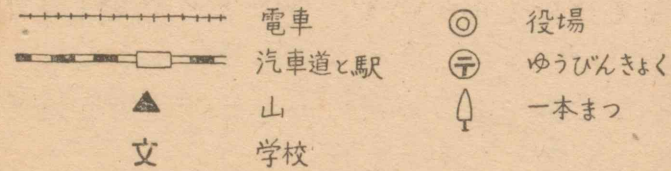 電車
汽車道と駅
山
文 学校
◎ 役場
〒 ゆうびんきょく
一本まつ